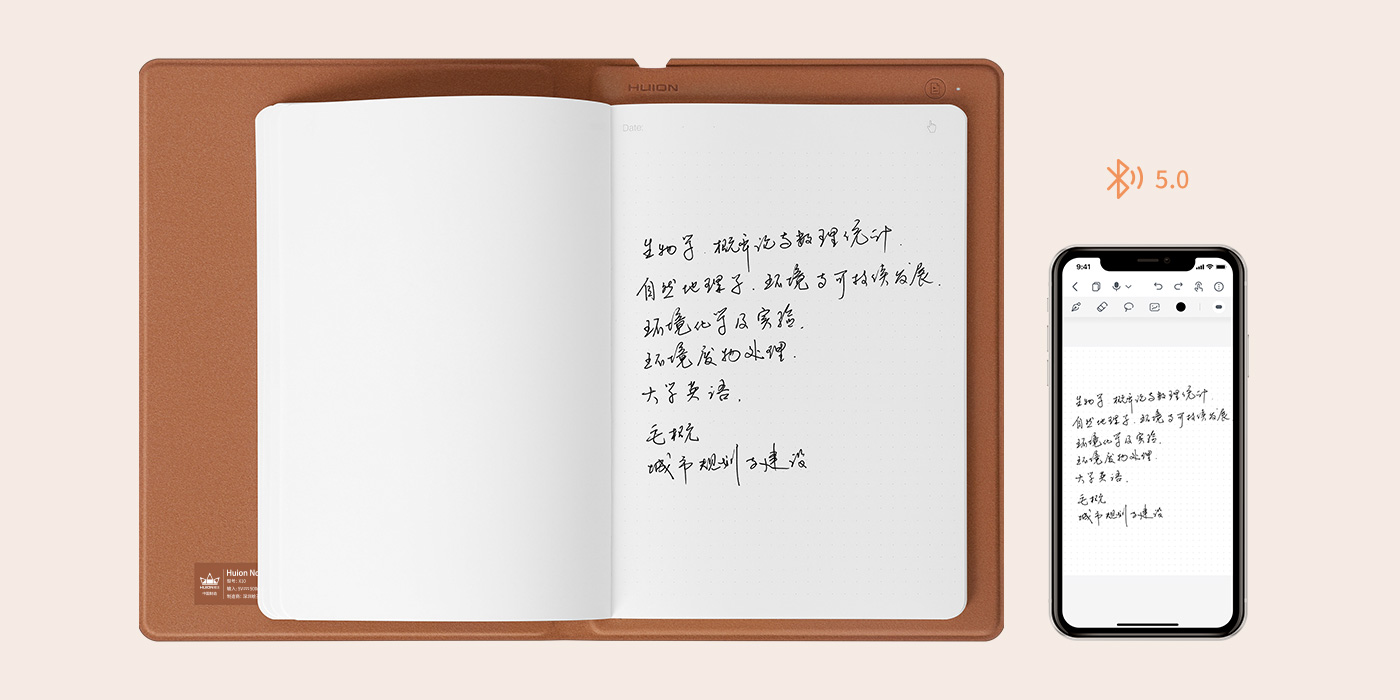 HUION
Date:
生物学.概率论与数理统计.
自然地理学.环境与可持续发展.
环境化学及实验.
环境废物处理.
大学英语.
毛概
城市规划与建设
HUION
中国制造
Huion No
型号: X10
输入: 5V
制造商: 深圳
5.0
9:41
生物学.概率论与数理统计.
自然地理学.环境与可持续发展
环境化学及实验.
环境废物处理.
大学英语.
毛概
城市规划与建设